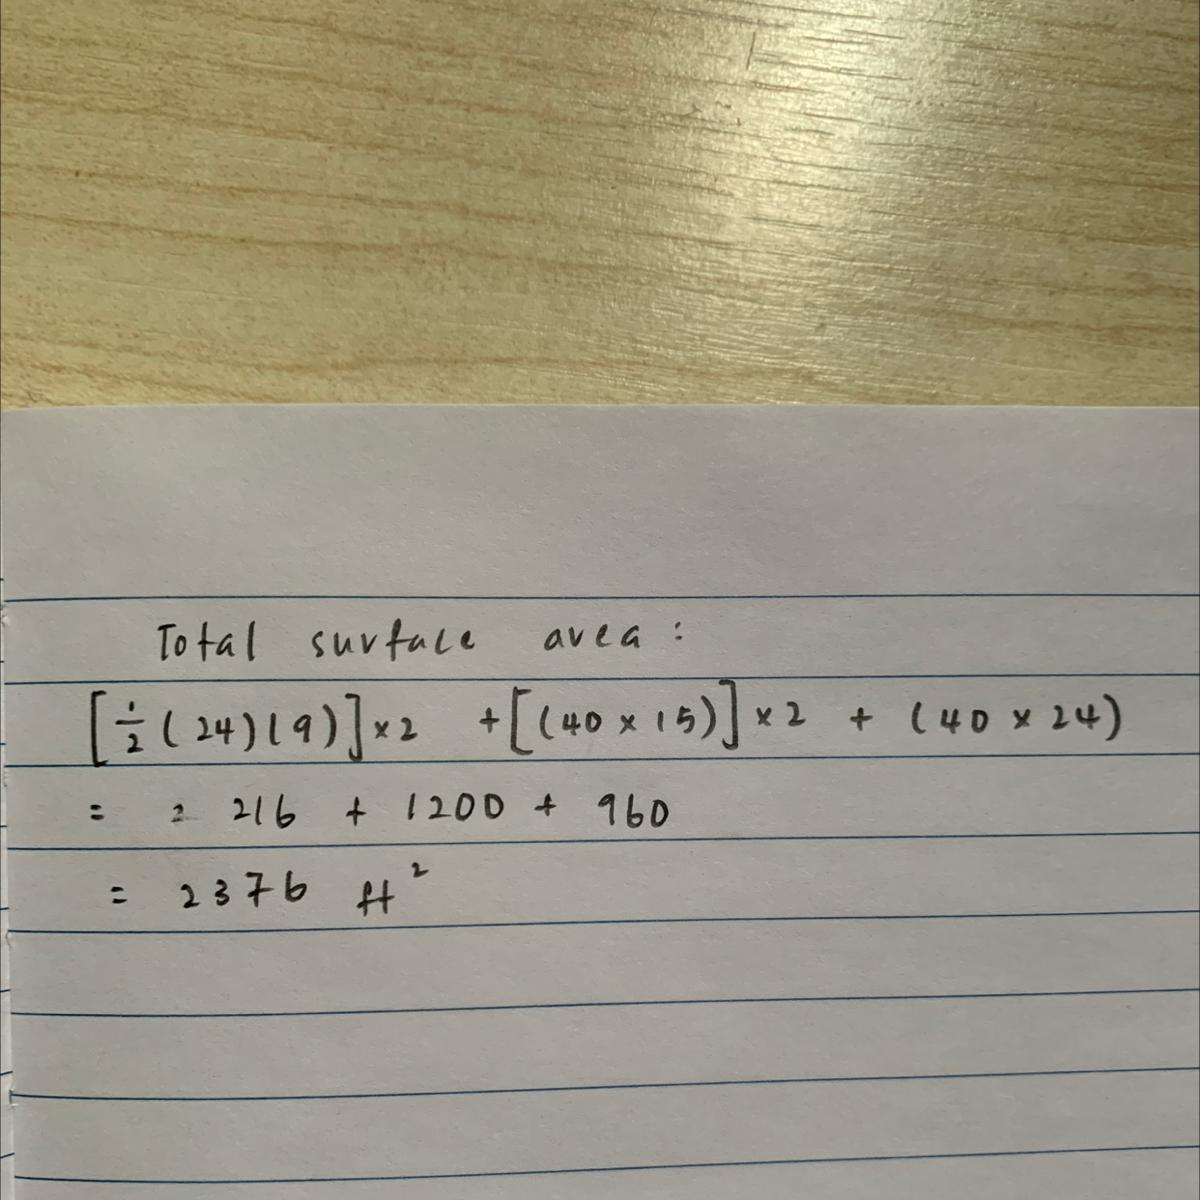 Total surface area :
[1/2 (24)(9)] × 2 + [(40 × 15)] × 2 + (40 × 24)
= = 216 + 1200 + 960
= 2376 ft²